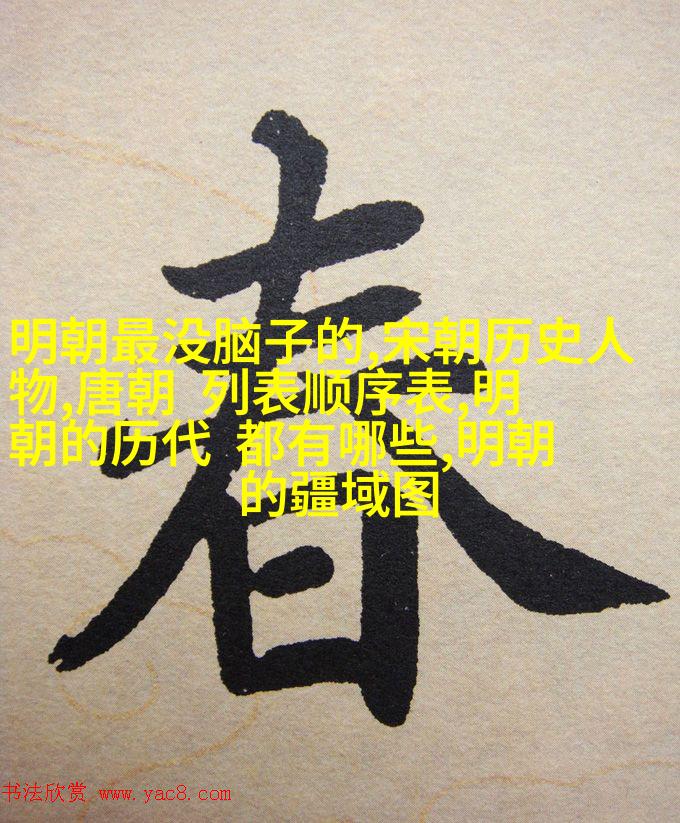 春
明朝最没脑子的,宋朝历史人
物,唐朝 列表顺序表,明
朝的历代 都有哪些,明朝
的疆域图
书法欣赏 www.yac8.com